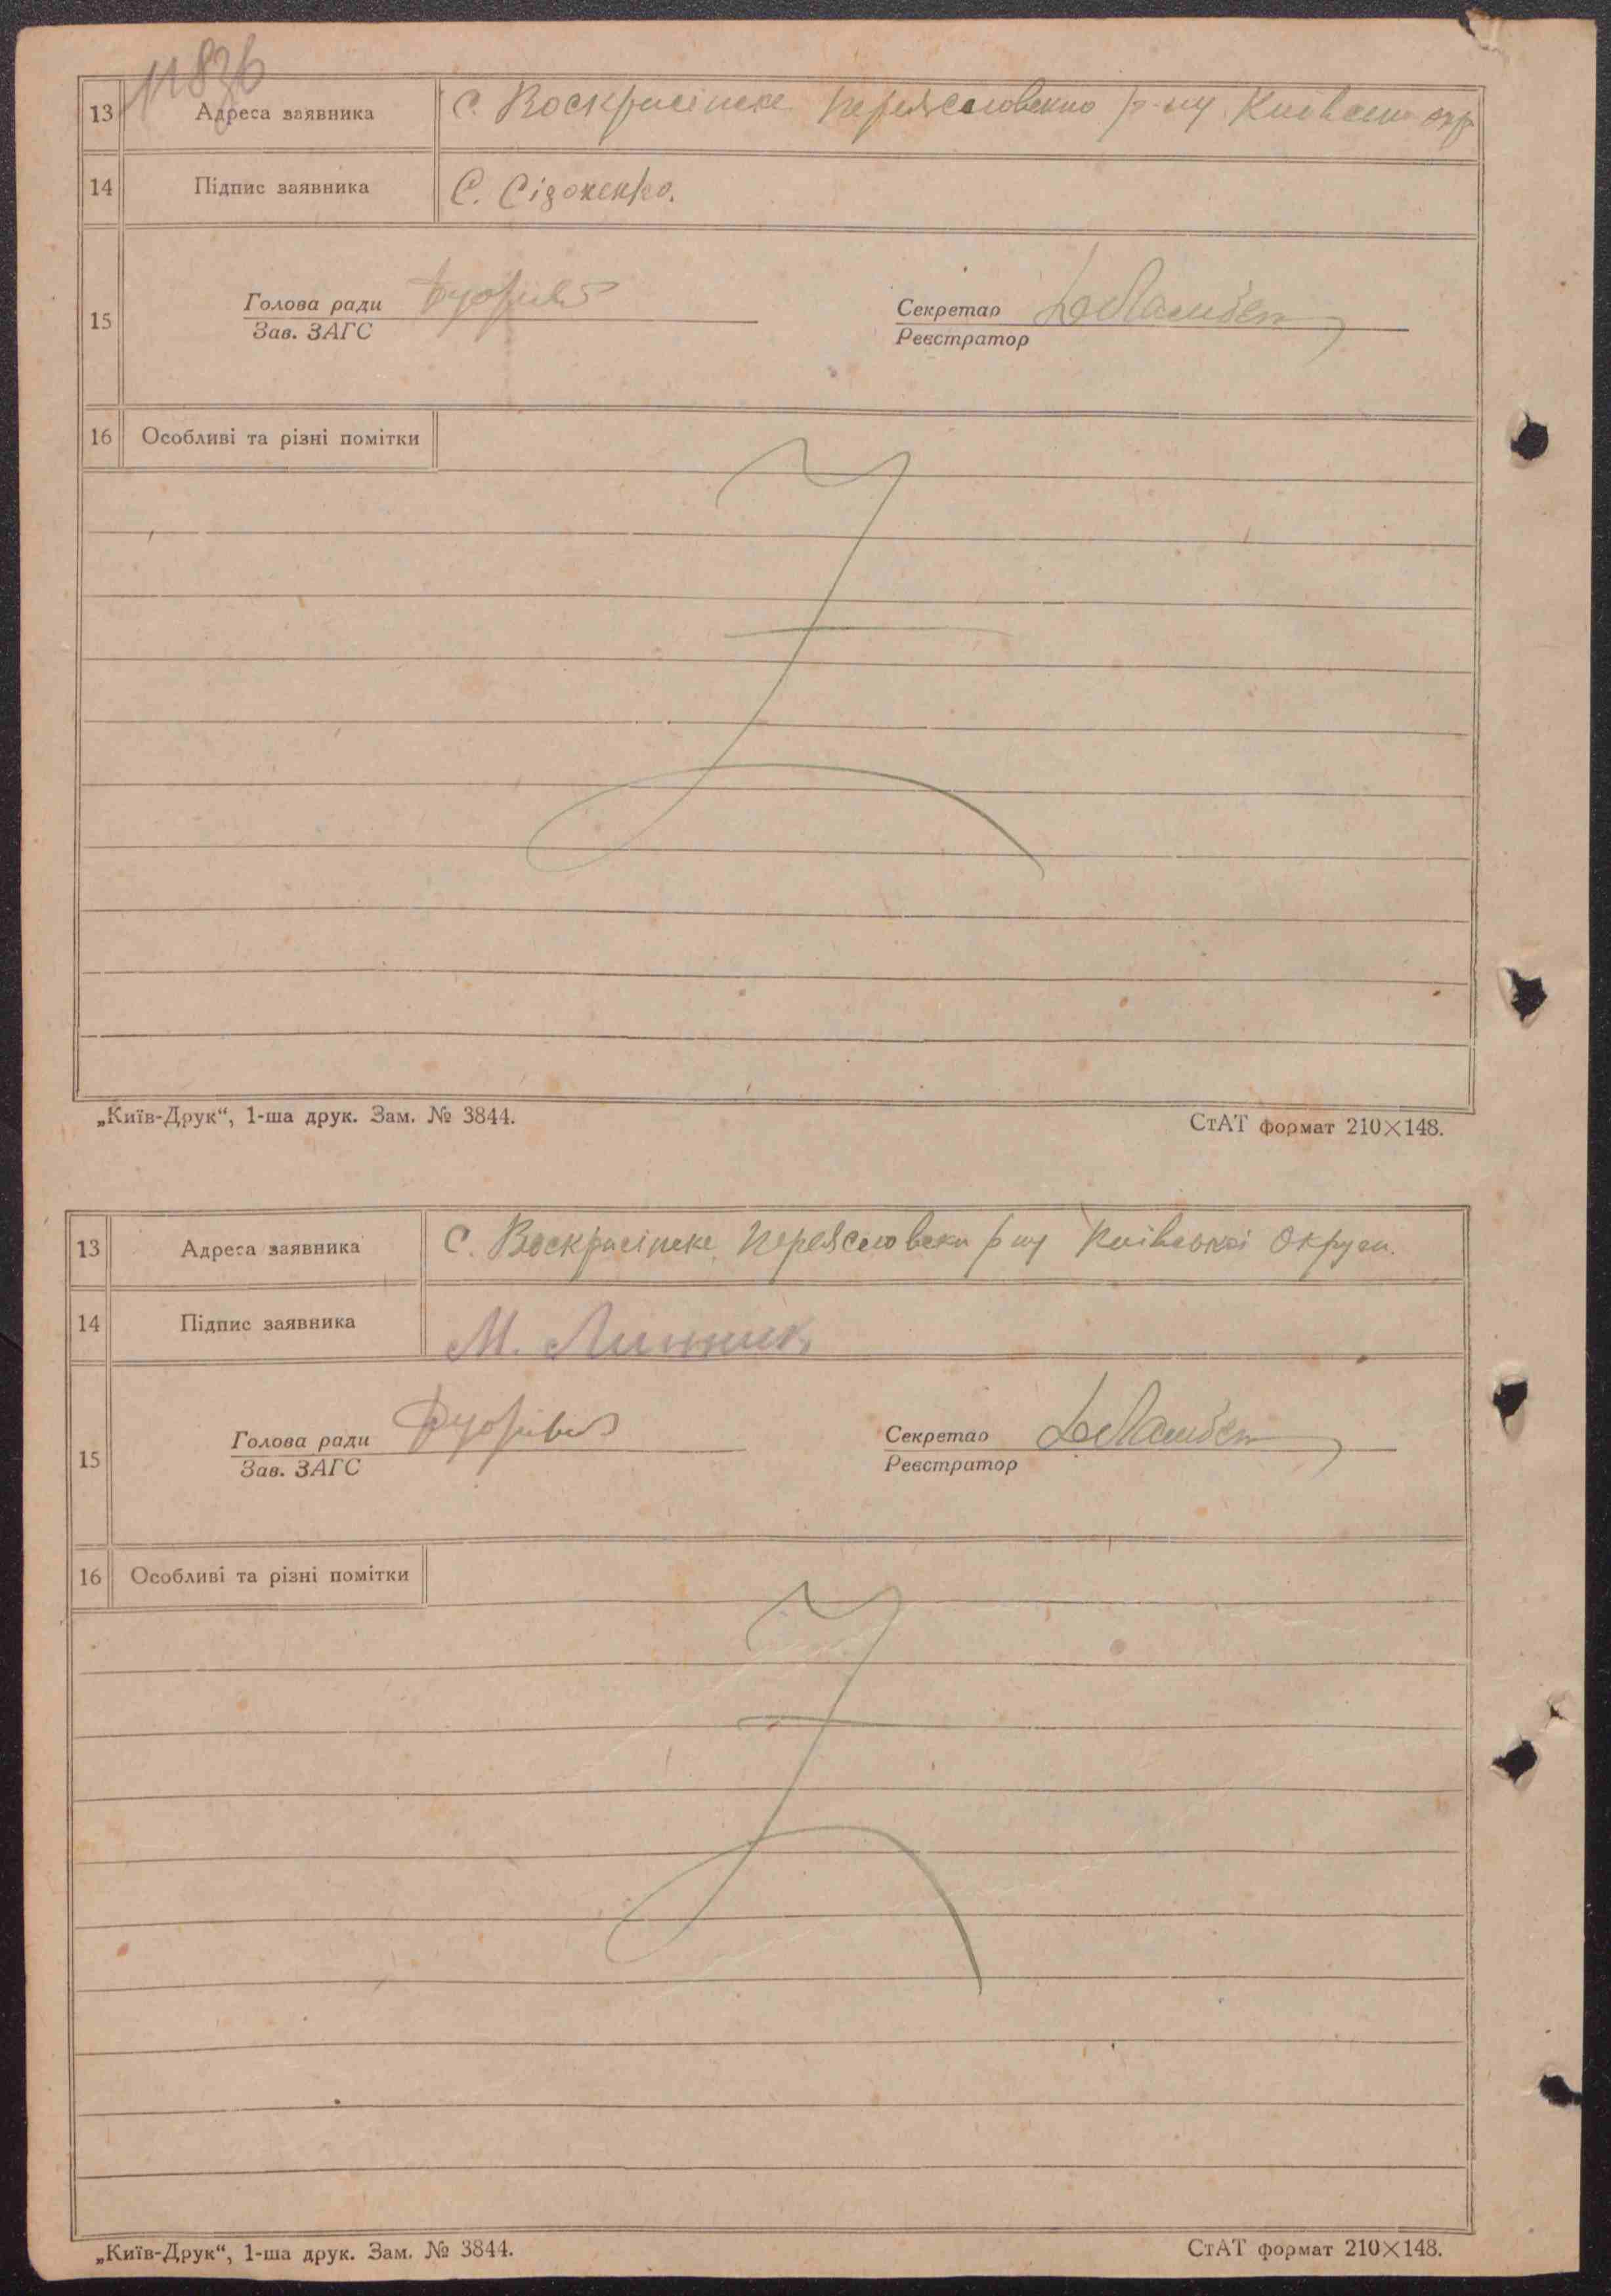 11836
13 Адреса заявника С. Воскрасінске Переясловсько р-ну Київсько окр
14 Підпис заявника С. Сідоненко.
15 Голова ради Секретар
Зав. ЗАГС Реєстратор
16 Особливі та різні помітки
„Київ-Друк“, 1-ша друк. Зам. № 3844. СтАТ формат 210×148.
13 Адреса заявника С. Воскрасінске Переясловськ р ну Київської Округи.
14 Підпис заявника М. Линник
15 Голова ради Секретар
Зав. ЗАГС Реєстратор
16 Особливі та різні помітки
„Київ-Друк“, 1-ша друк. Зам. № 3844. СтАТ формат 210×148.